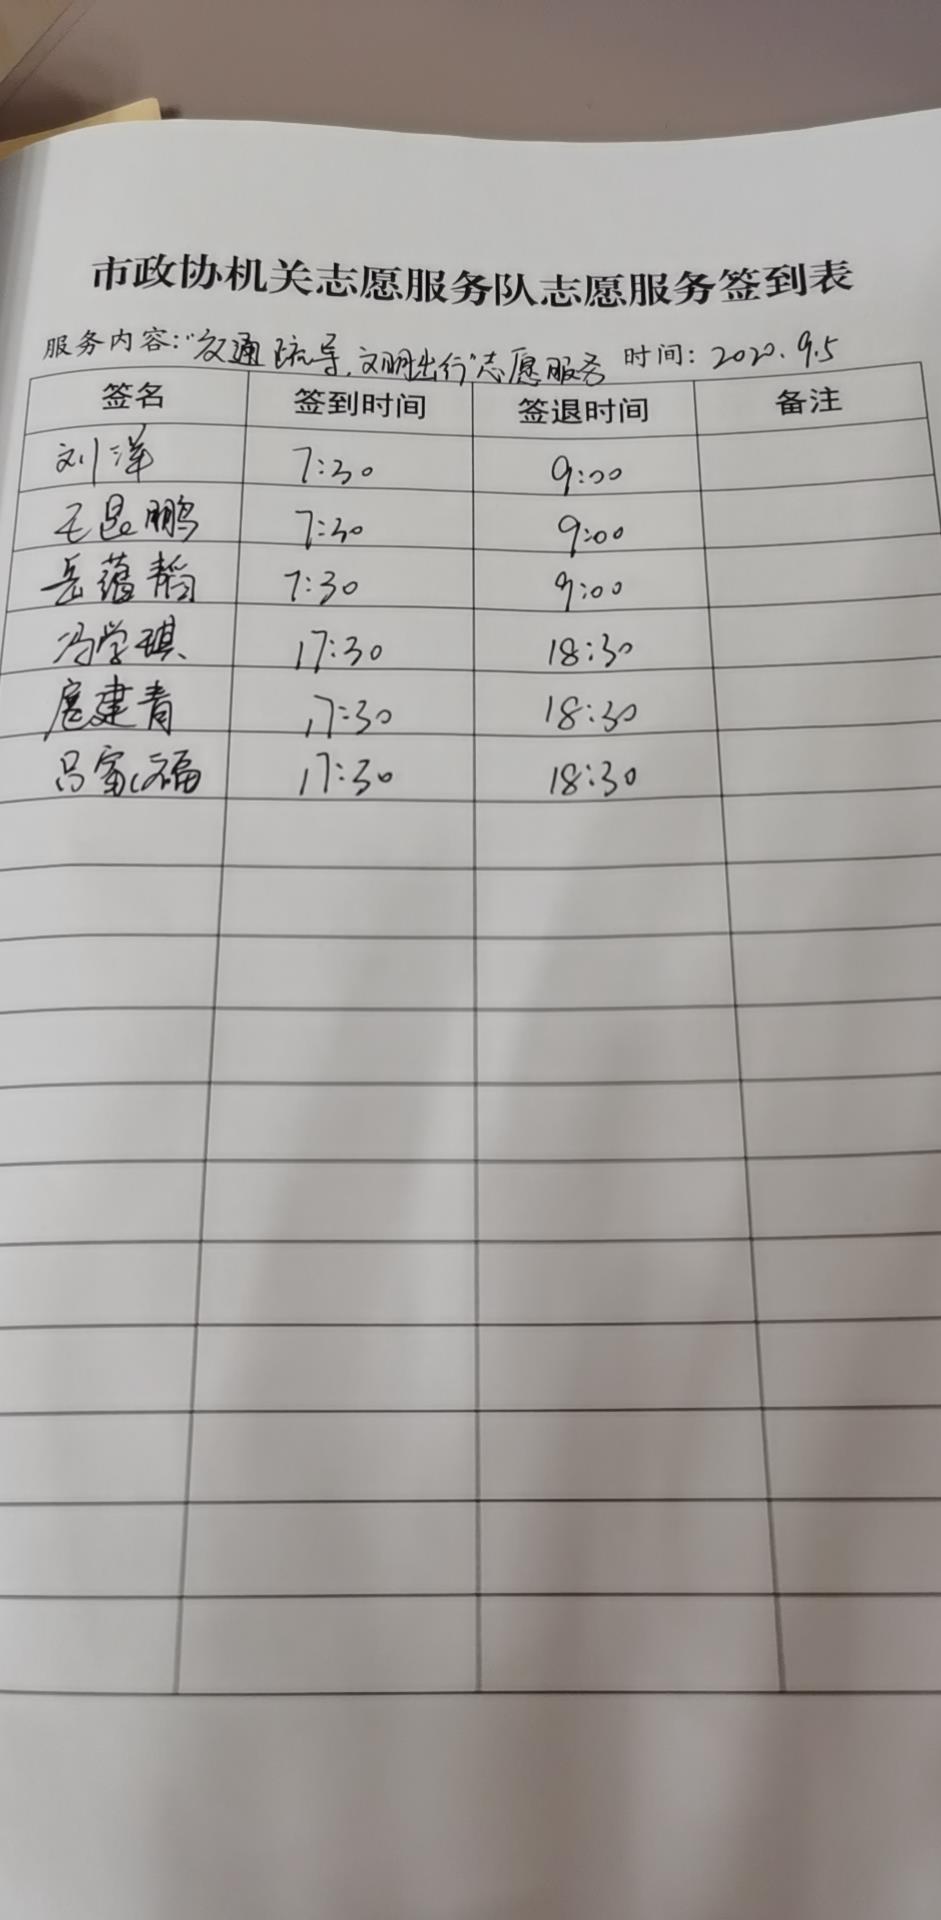 市政协机关志愿服务队志愿服务签到表
服务内容:“交通疏导,文明出行”志愿服务 时间: 2020.9.5
签名 签到时间 签退时间 备注
刘洋 7:30 9:00
王昆鹏 7:30 9:00
岳蕴韬 7:30 9:00
冯学琪 17:30 18:30
扈建青 17:30 18:30
吕富福 17:30 18:30